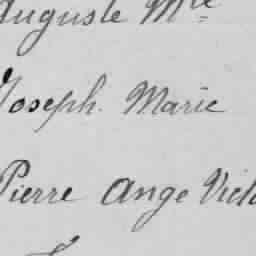 Auguste Mie
Joseph. Marie
Pierre Ange Vict